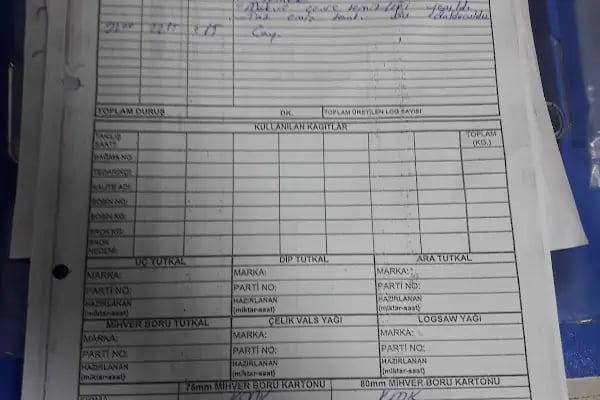 Makine çevre temizliği yapıldı
22:00 22:15 Çay.
TOPLAM DURUŞ DK. TOPLAM ÜRETİLEN LOG SAYISI
KULLANILAN KAGITLAR
TAKILIŞ SAATİ TOPLAM (KG.)
BAĞMA NO:
TEDARİKÇİ:
KALİTE ADI:
BOBİN NO:
BOBİN KG:
BROK KG:
BROK NEDENİ:
UÇ TUTKAL DİP TUTKAL ARA TUTKAL
MARKA: MARKA: MARKA:
PARTİ NO: PARTİ NO: PARTİ NO:
HAZIRLANAN (miktar-saat) HAZIRLANAN (miktar-saat) HAZIRLANAN (miktar-saat)
MİHVER BORU TUTKAL ÇELİK VALS YAĞI LOGSAW YAĞI
MARKA: MARKA: MARKA:
PARTİ NO: PARTİ NO: PARTİ NO:
HAZIRLANAN (miktar-saat) HAZIRLANAN (miktar-saat) HAZIRLANAN (miktar-saat)
76mm MİHVER BORU KARTONU 80mm MİHVER BORU KARTONU